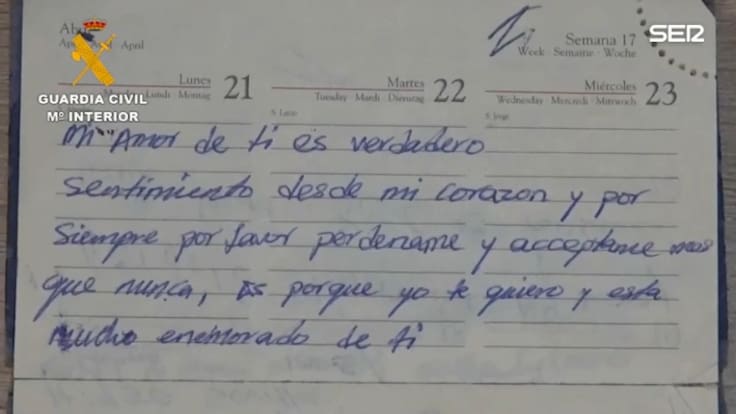 Abril
April
SER
Semana 17
Week · Semaine · Woche
Lunes
Lundi · Montag
21
Martes
Tuesday · Mardi · Dienstag
22
Miércoles
Wednesday · Mercredi · Mittwoch
23
S. Jorge
GUARDIA CIVIL
Mº INTERIOR
Mi Amor de ti es verdadero
Sentimiento desde mi corazon y por
Siempre por favor perdename y acceptame mas
que nunca, es porque yo te quiero y esta
mucho enemorado de ti